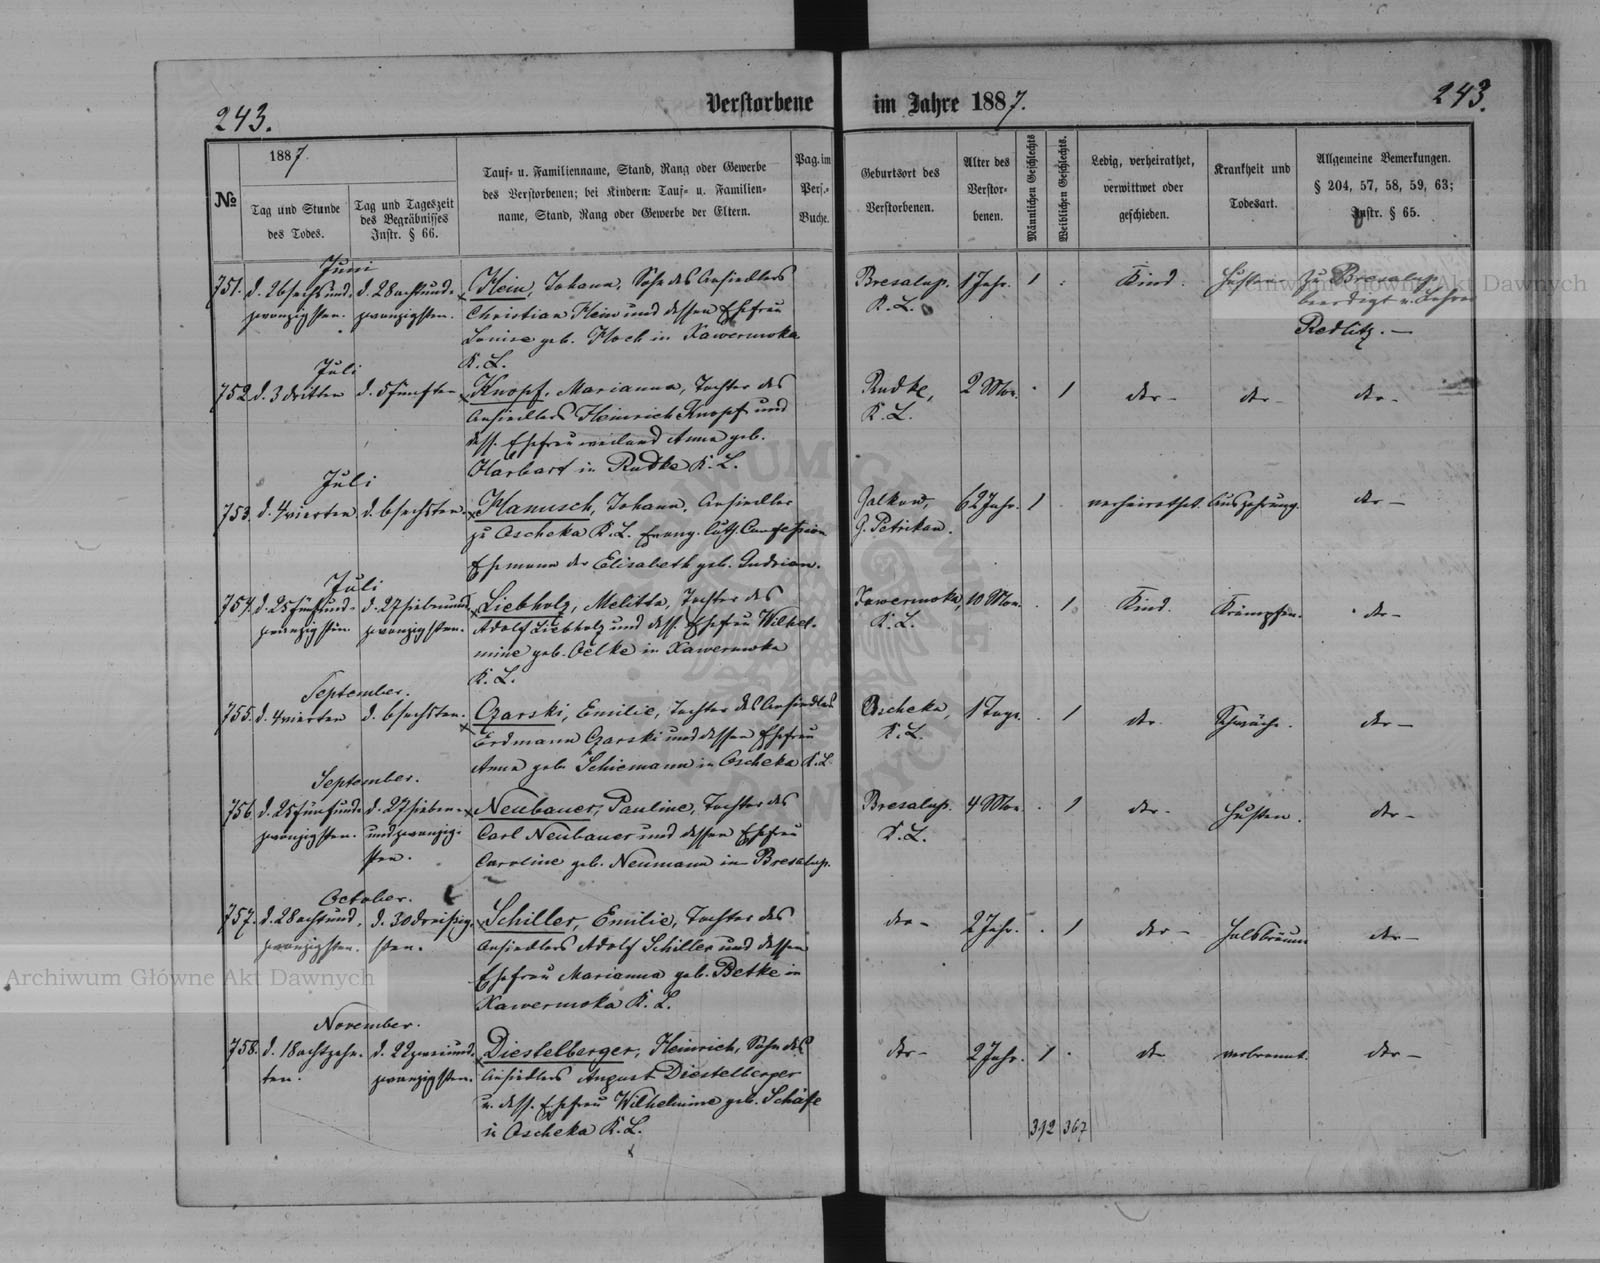 243.
Verstorbene im Jahre 1887.
243.
№
1887
Tag und Stunde
des Todes.
Tag und Tageszeit
des Begräbnisses
Instr. § 66.
Tauf= u. Familienname, Stand, Rang oder Gewerbe
des Verstorbenen; bei Kindern: Tauf= u. Familien=
name, Stand, Rang oder Gewerbe der Eltern.
Pag. im
Pers.=
Buche.
Geburtsort des
Verstorbenen.
Alter des
Verstor=
benen.
Männlichen Geschlechts
Weiblichen Geschlechts.
Ledig, verheirathet,
verwittwet oder
geschieden.
Krankheit und
Todesart.
Allgemeine Bemerkungen.
§ 204, 57, 58, 59, 63;
Instr. § 65.
Juni
751. d. 26 sechsund- d. 28 achtund- Hein, Johann, Sohn des Ansiedlers Bresalup. 1 Jahr. 1 Kind. Husten zu Bresalup
zwanzigsten. zwanzigsten. Christian Hein und dessen Ehefrau K. L. beerdigt v.
Louise geb. Hoch in Xawerowka Redlitz. —
K. L.
Juli
752. d. 3 dritten d. 5 fünften Knopf, Marianna, Tochter des Rudke, 2 Mon. 1 dto- dto- dto-
Ansiedlers Heinrich Knopf und K. L.
dess. Ehefrau weiland Anna geb.
Harbart in Rudka K. L.
Juli
753. d. 4 vierten d. 6 sechsten. Hanusch, Johann, Ansiedler 62 Jahr. 1 verheirathet. Auszehrung. dto —
zu Oscheka K. L. Evang. Luth. Confession G. Petrikau.
Ehemann der Elisabeth geb.
Juli
754. d. 25 fünfund- d. 27 siebenund- Liebholz, Melitta, Tochter des Xawerowka, 10 Mon. 1 Kind. Krämpfen. dto —
zwanzigsten. zwanzigsten. Adolf Liebholz und dess. Ehefrau Wilhel- K. L.
mine geb. Oelke in Xawerowka
K. L.
September.
755. d. 4 vierten d. 6 sechsten. Czarski, Emilie, Tochter des Ansiedlers Oscheka, 1 Tag. 1 dto. Schwäche. dto —
Erdmann Czarski und dessen Ehefrau K. L.
Anna geb. Schiemann in Oscheka K. L.
September.
756. d. 25 fünfund- d. 27 sieben- Neubauer, Pauline, Tochter des Bresalup. 4 Mon. 1 dto- Husten. dto —
zwanzigsten. undzwanzig- Carl Neubauer und dessen Ehefrau K. L.
sten. Caroline geb. Neumann in Bresalup.
October.
757. d. 28 achtund- d. 30 dreißig- Schiller, Emilie, Tochter des dto — 2 Jahr. 1 dto — Halsbräune dto —
zwanzigsten. sten. Ansiedlers Adolf Schiller und dessen
Ehefrau Marianna geb. Betke in
Xawerowka K. L.
November.
758. d. 18 achtzehn- d. 22 zweiund- Diestelberger, Heinrich, Sohn des dto — 2 Jahr. 1 dto verbrannt. dto —
ten. zwanzigsten. Ansiedlers August Diestelberger
u. dess. Ehefrau Wilhelmine geb. Schäfe
in Oscheka K. L.
392 367
Archiwum Główne Akt Dawnych
Archiwum Główne Akt Dawnych